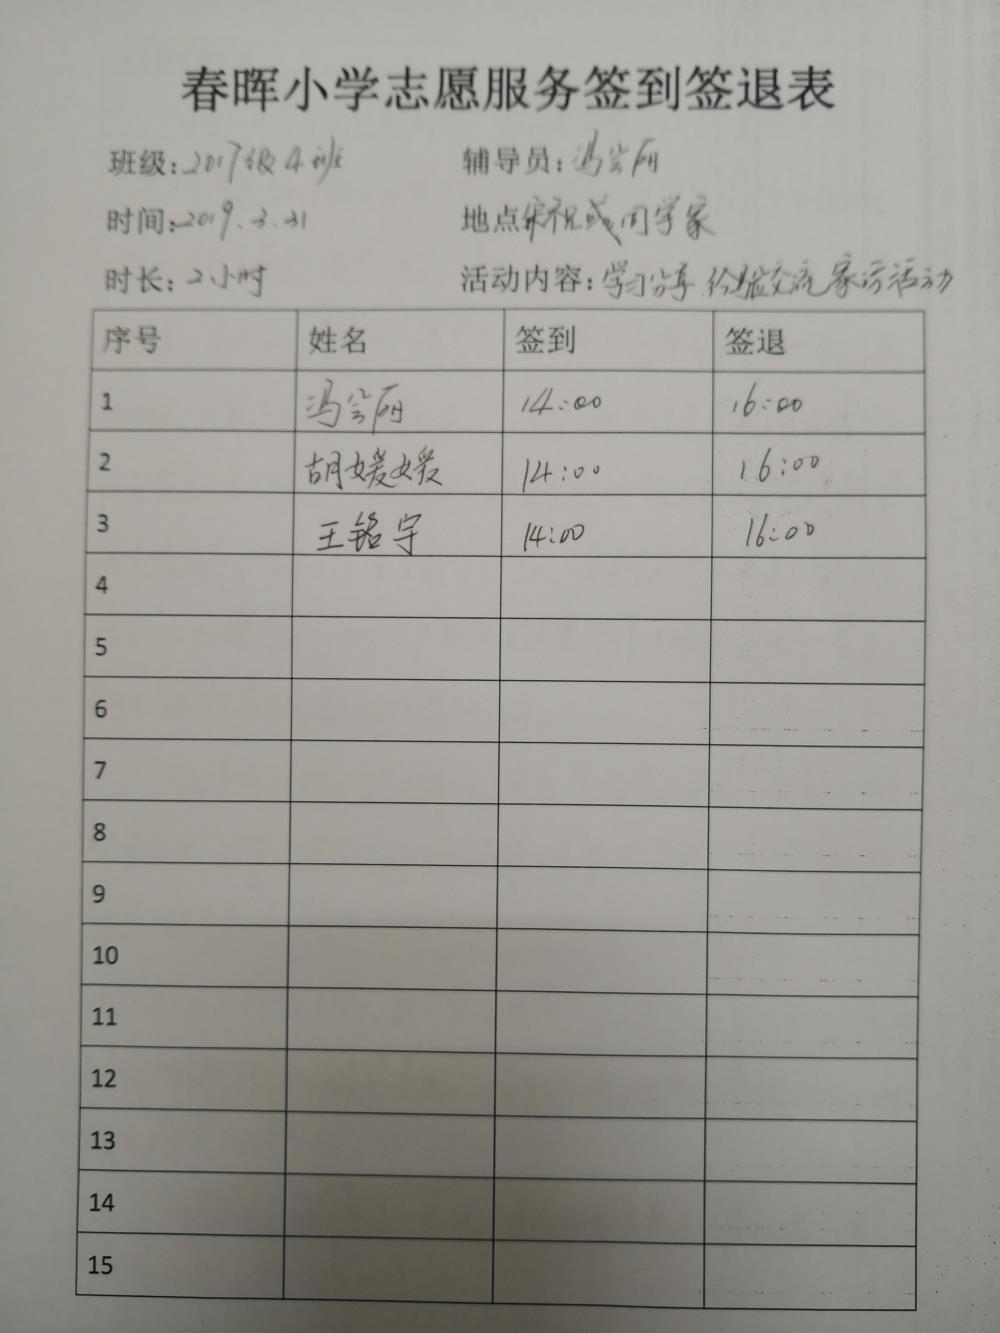 春晖小学志愿服务签到签退表
班级:2017级4班 辅导员:冯会丽
时间:2019.3.31 地点 祝成同学家
时长:2小时 活动内容:学习分享 经验交流 家访活动
序号 姓名 签到 签退
1 冯会丽 14:00 16:00
2 胡媛媛 14:00 16:00
3 王铭宇 14:00 16:00
4
5
6
7
8
9
10
11
12
13
14
15